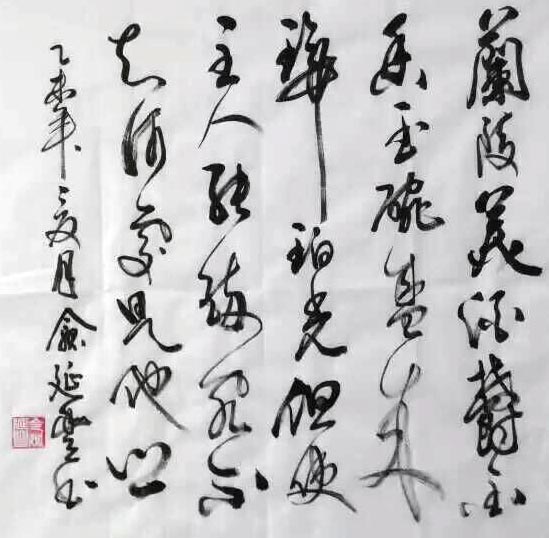 蘭陵美酒鬱金
香玉碗盛來
琥珀光但使
主人能醉客不
知何處是他鄉
乙未年夏月俞延豐書